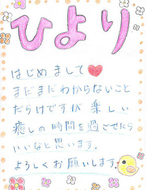 ひより
はじめまして
まだまだわからないこと
だらけですが 楽しい
癒しの時間を過ごせたら
いいなと思います。
よろしくお願いします。